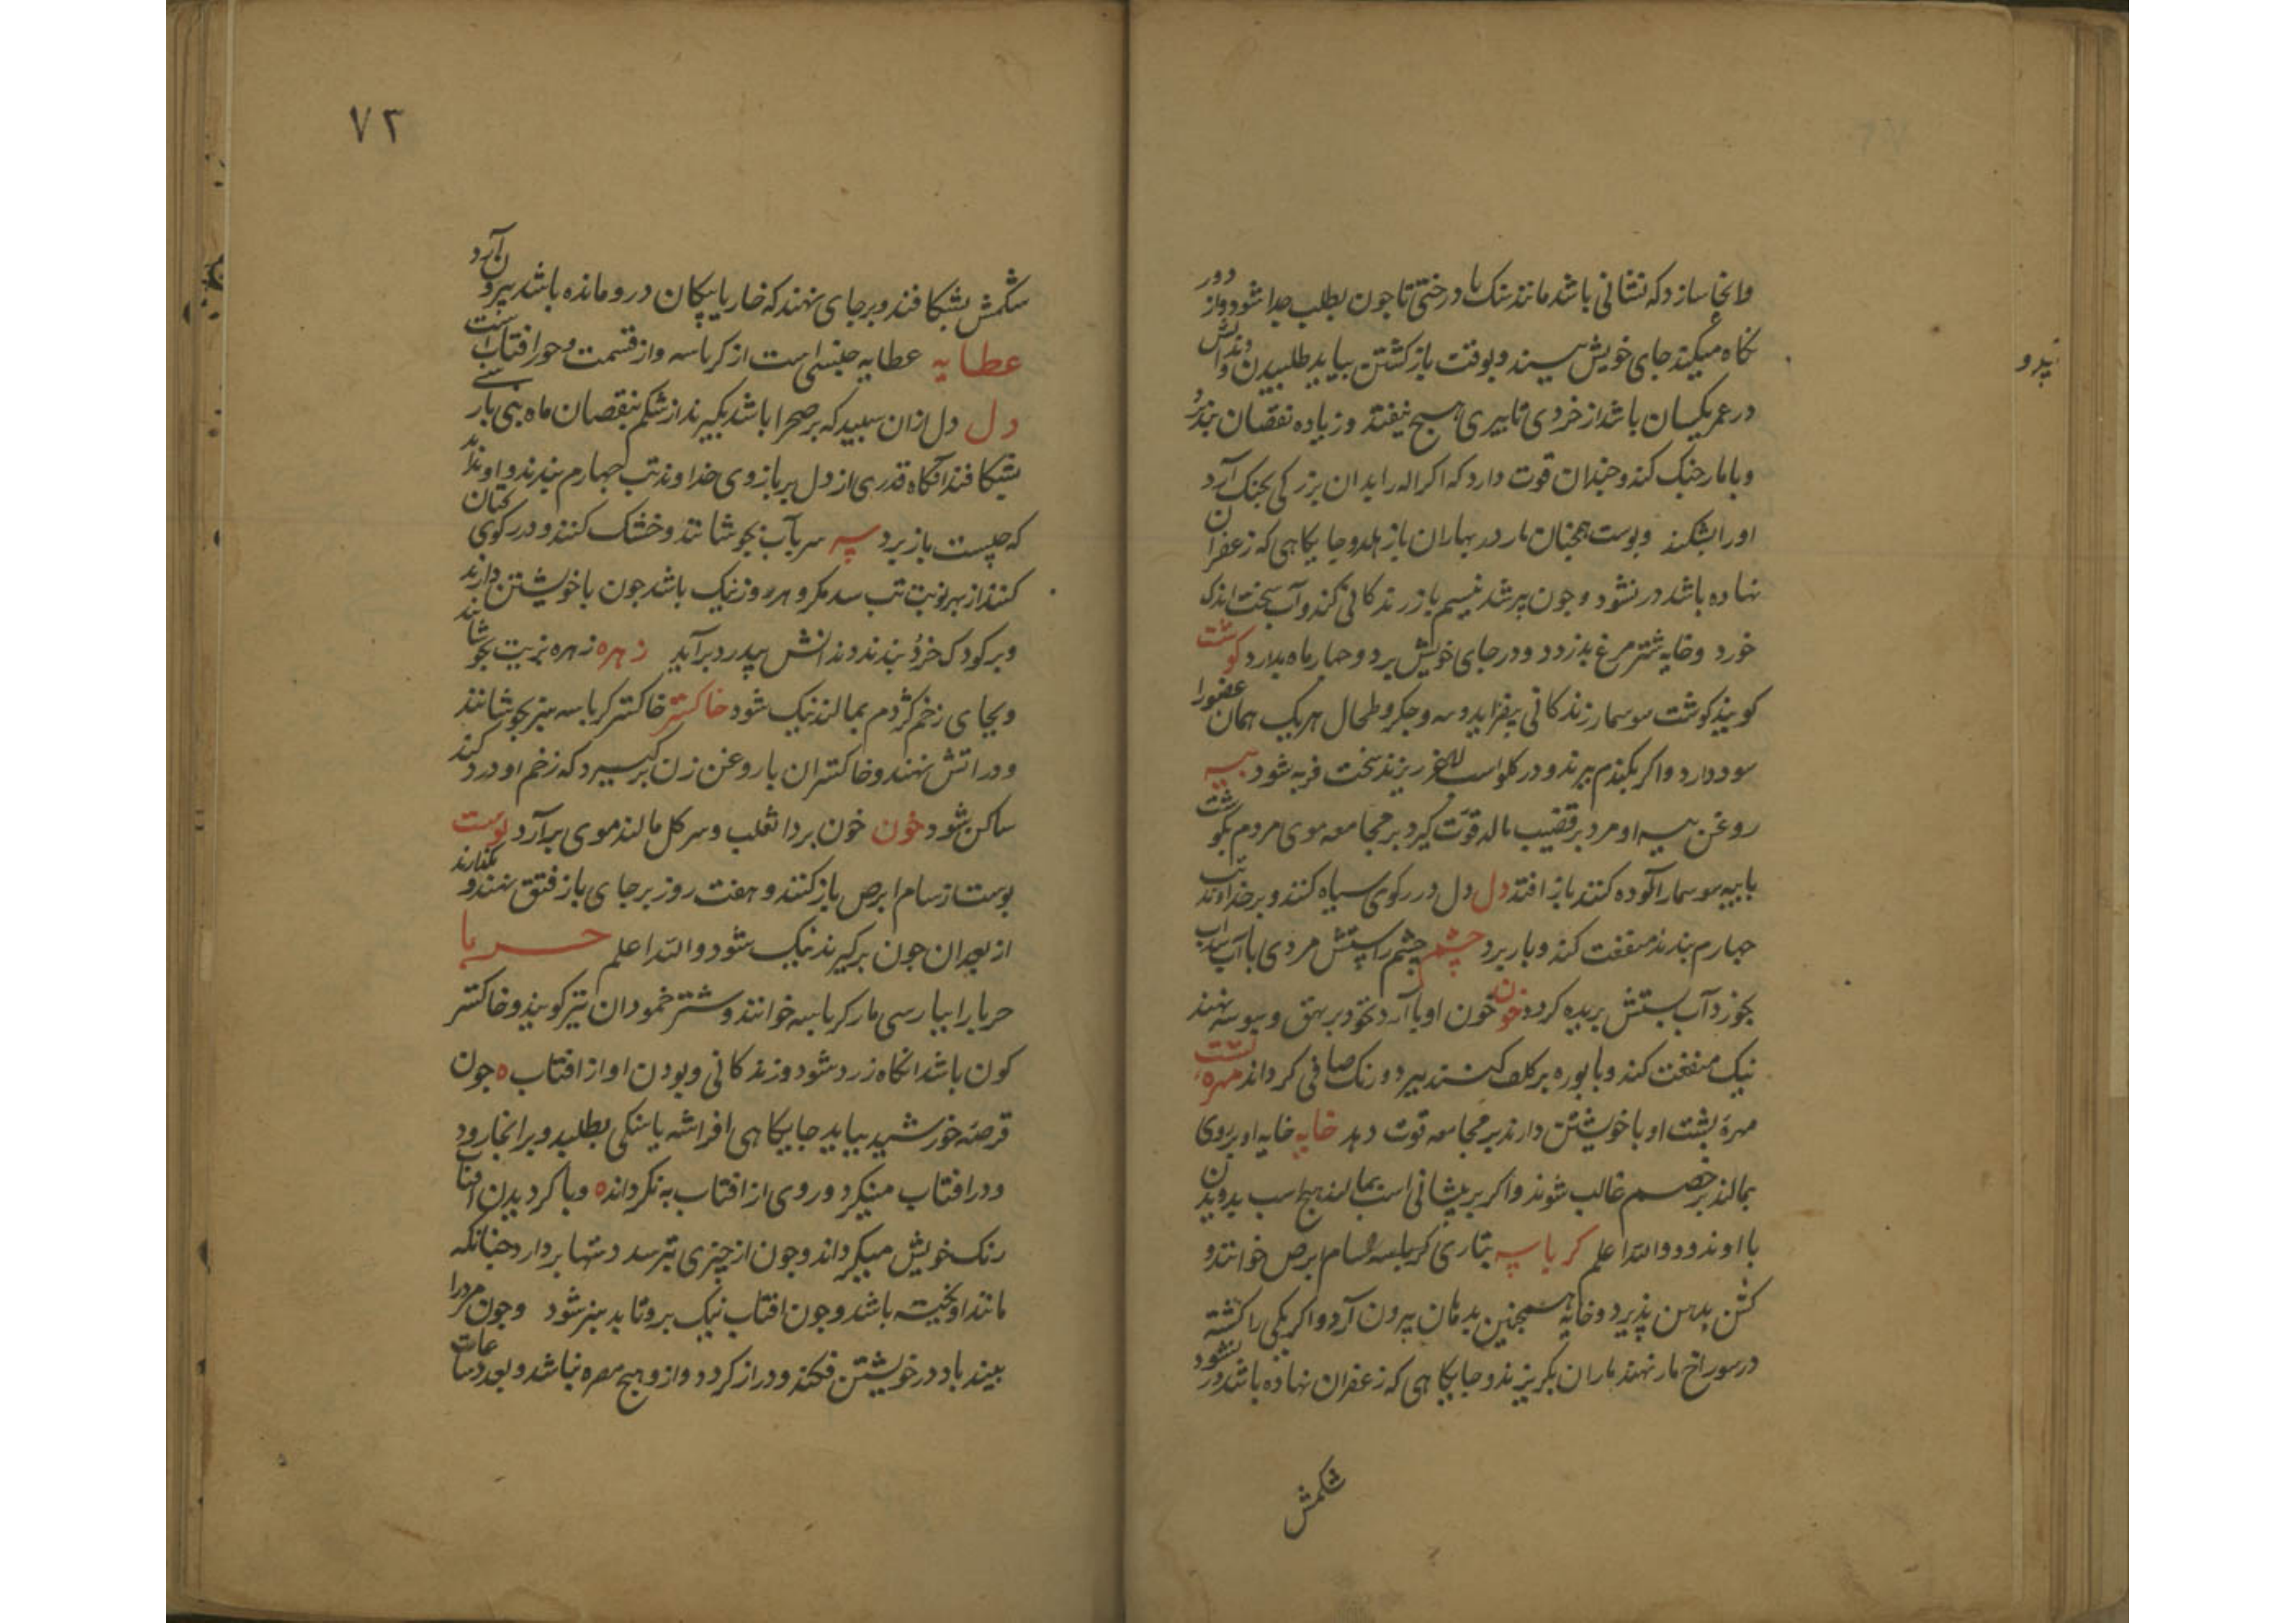 وانجا سازد که نشانی باشد مانند سنک یا درختی تا جون بطلب جدا شود و از دور
نکاه میکند جای خویش بیند و بوقت باز کشتن بیاید طلبیدن و دندانش
در عمر یکسان باشد از خردی تا پیری هیچ نیفتد و زیاده نقصان نپذیرد
و با مار جنک کند و جندان قوت دارد که اکر اورا بدان بزرکی بجنک آرد
اورا بشکند و بوست همجنان مار در بهاران باز هلد و جایکاهی که زعفران
نهاده باشد در نشود و جون پیر شد نسیم باز زندکانی کند و آب سخت اندک
خورد و خایه شتر مرغ بدزدد و در جای خویش برد و جهار ماه بدارد کوشت
کویند کوشت سوسمار زندکانی بیفزاید و سه و جکر و طحال هر یک همان عضو را
سود دارد و اکر بکندم بپزند و در کلو اسب لاغر ریزند سخت فربه شود پیه
روغن پیه او مرد بر قضیب مالد قوت کیرد بر مجامعه موی مردم بکوشت
با پیه سوسمار آلوده کنند باز افتد دل دل در رکوی سیاه کنند و بر خداوند تب
جهارم بندند منفعت کند و باز برد چشم چشم راستش مردی با آب سداب
بخورد آب پشتش بریده کردد خون خون او با آرد نخود بر بهق و پیوسه نهند
نیک منفعت کند و با بوره بر کلف کنند ببرد و رنک صافی کرداند مهره پشت
مهره پشت او با خویشتن دارند بر مجامعه قوت دهد خایه خایه او بر روی
بمالند بر خصم غالب شوند و اکر بر پیشانی اسب بمالند هیج اسب بدویدن
با او ندود والله اعلم کرباسه بتازی کرباسه را سام ابرص خوانند و
کشن بدهن پذیرد و خایه همجنین بدهان بیرون آرد و اکر یکی را کشته
در سوراخ مار نهند ماران بکریزند و جایکاهی که زعفران نهاده باشد در نشود
شکمش
۷۳
شکمش بشکافند و بر جای نهند که خار یا پیکان درو مانده باشد بیرون آرد
عطایه عطایه جنسی است از کرباسه و از قسمت و جور افتاب است
دل دل از ان سپید که بر صحرا باشد بکیرند از شکم بنقصان ماه نی بارسی
بشکافند آنکاه قدری از دل بر بازوی خداوند تب جهارم بندند و او نداند
که چیست باز برد پیه سر بآب بجوشانند و خشک کنند و در رکوی کتان
کنند از بهر نوبت تب سه مکر و هر روز نیک باشد جون با خویشتن دارند
و بر کودک خرد بندند دندانش بیدرد برآید زهره زهره بزیت بجوشانند
و بجای زخم کژدم بمالند نیک شود خاکستر خاکستر کرباسه سبز بجوشانند
و در اتش نهند و خاکستر ان با روغن زن بر کسیرد که زخم او درد کند
ساکن شود خون خون بر داء ثعلب و سر کل مالند موی برآرد بوست
بوست از سام ابرص باز کنند و هفت روز بر جای باز فتق نهند و بکذارند
از بعد ان جون برکیرند نیک شود والله اعلم حربا
حربا را ببارسی مار کرباسه خوانند و شتر خمودان نیز کویند و خاکستر
کون باشد انکاه زرد شود و زندکانی و بودن او از افتاب ه جون
قرصه خورشید بیاید جایکاهی افراشته یا سنکی بطلبد و بر انجا رود
و در افتاب مینکرد و روی از افتاب به نکرداند ه و با کردیدن افتاب
رنک خویش میکرداند و جون از چیزی بترسد دستها بردارد جنانکه
مانند اویخته باشد و جون افتاب نیک برو تابد سبز شود و جون مرد را
بیند باد در خویشتن فکند و دراز کردد و از و هیچ مضره نباشد و بعد ساعات